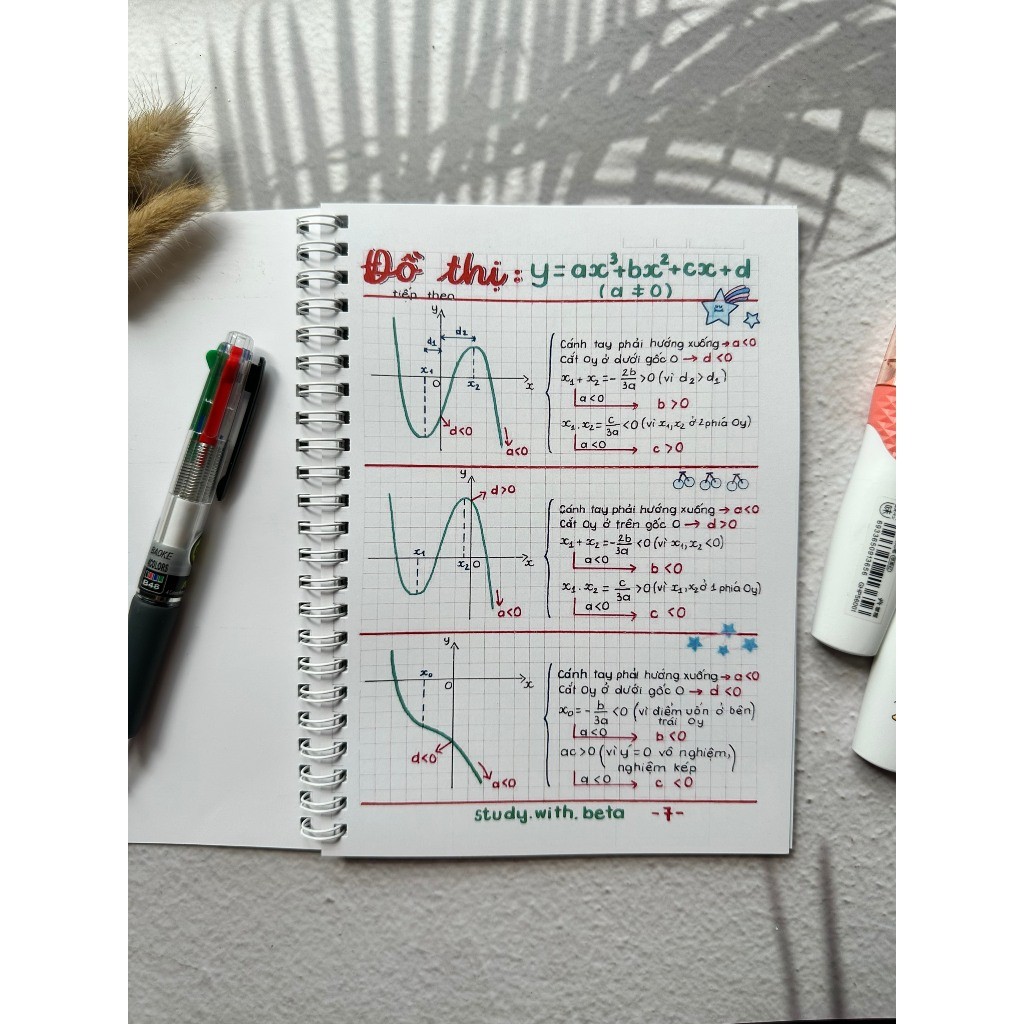 Đồ thị: y = ax³+bx²+cx+d
(a ≠ 0)
tiếp theo
y
d₂
d₁
x₁
O
x₂
x
d<0
a<0
Cánh tay phải hướng xuống → a<0
Cắt Oy ở dưới gốc O → d<0
x₁ + x₂ = - 2b/3a > 0 (vì d₂ > d₁)
a<0
b > 0
x₁ . x₂ = c/3a < 0 (vì x₁, x₂ ở 2 phía Oy)
a<0
c > 0
y
d>0
x₁
x₂
O
x
a<0
Cánh tay phải hướng xuống → a<0
Cắt Oy ở trên gốc O → d>0
x₁ + x₂ = - 2b/3a < 0 (vì x₁, x₂ < 0)
a<0
b < 0
x₁ . x₂ = c/3a > 0 (vì x₁, x₂ ở 1 phía Oy)
a<0
c < 0
y
x₀
O
x
d<0
a<0
Cánh tay phải hướng xuống → a<0
Cắt Oy ở dưới gốc O → d<0
x₀ = - b/3a < 0 (vì điểm uốn ở bên
trái Oy)
a<0
b<0
ac>0 (vì y' = 0 vô nghiệm,
nghiệm kép)
a<0
c < 0
study.with.beta -7-
BAOKE
COLORS
B46
6933650913656